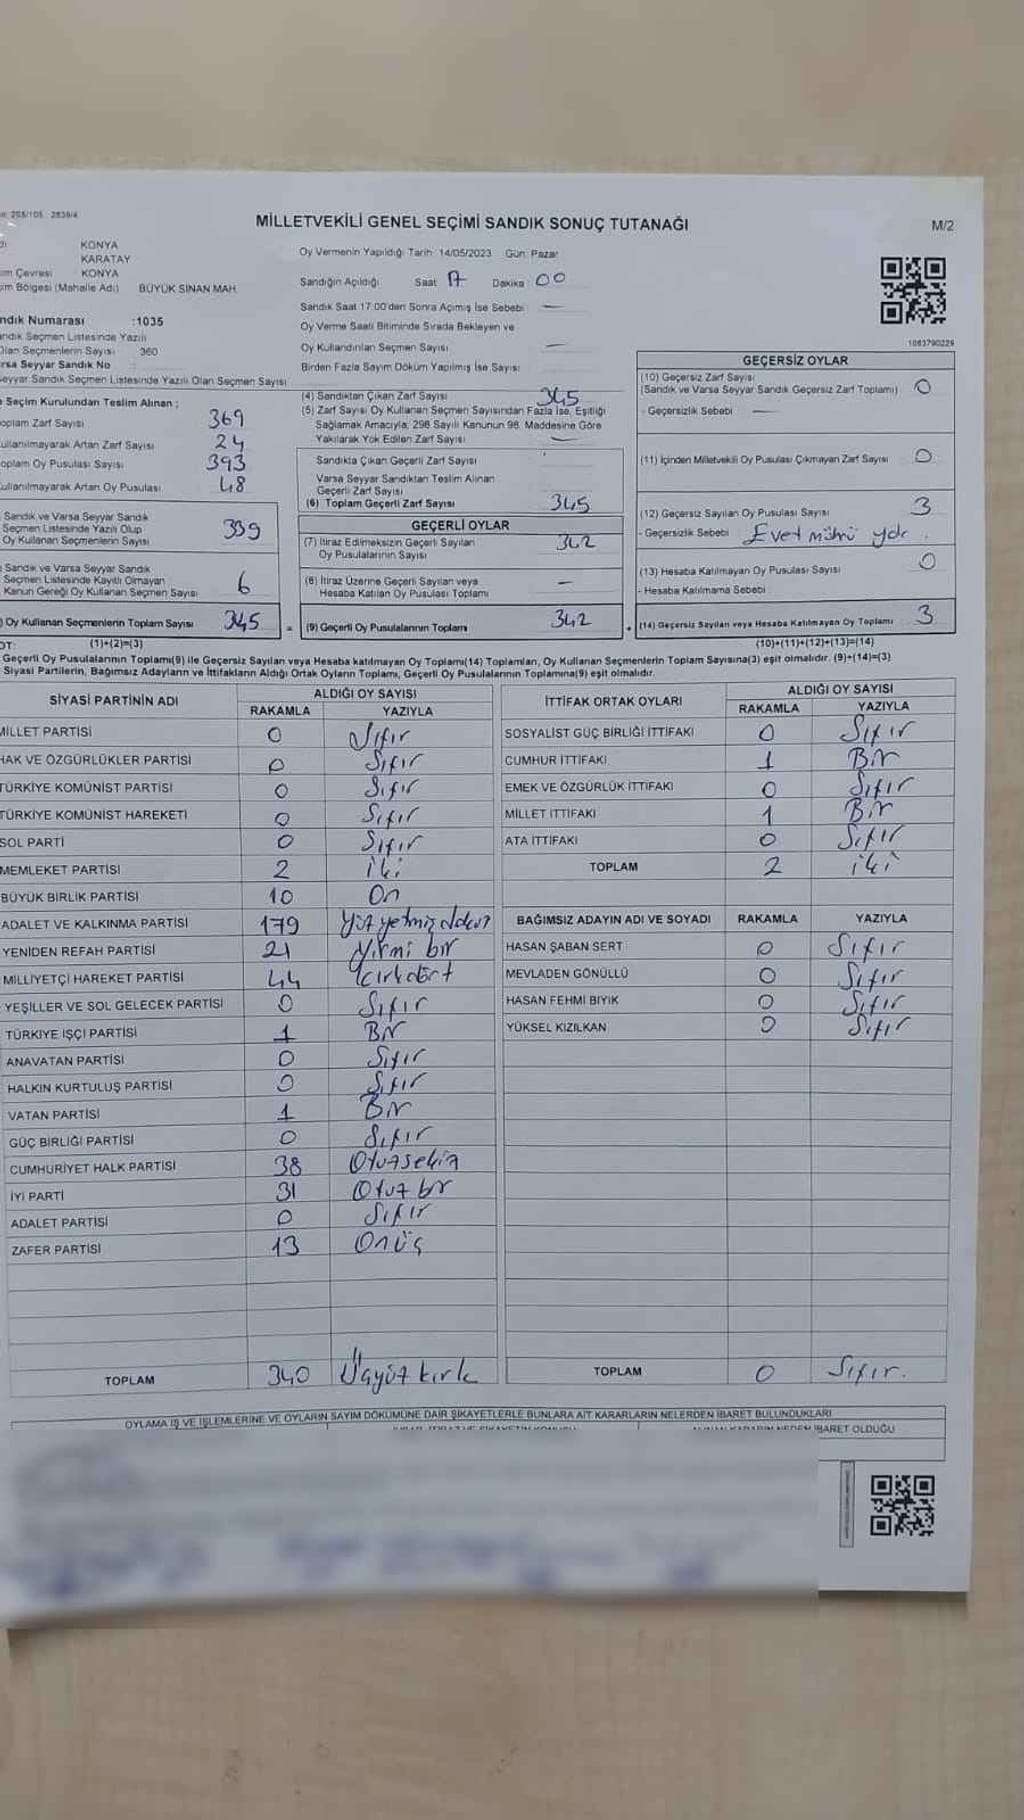 205/105 2839/4
MİLLETVEKİLİ GENEL SEÇİMİ SANDIK SONUÇ TUTANAĞI
M/2
KONYA
KARATAY
im Çevresi KONYA
im Bölgesi (Mahalle Adı) BÜYÜK SİNAN MAH.
ndık Numarası :1035
andık Seçmen Listesinde Yazılı
Olan Seçmenlerin Sayısı 360
rsa Seyyar Sandık No
eyyar Sandık Seçmen Listesinde Yazılı Olan Seçmen Sayısı
Oy Vermenin Yapıldığı Tarih: 14/05/2023 Gün: Pazar
Sandığın Açıldığı Saat 17 Dakika 00
Sandık Saat 17:00'den Sonra Açımış İse Sebebi —
Oy Verme Saati Bitiminde Sırada Bekleyen ve
Oy Kullandırılan Seçmen Sayısı —
Birden Fazla Sayım Döküm Yapılmış İse Sayısı
1083790229
e Seçim Kurulundan Teslim Alınan ;
oplam Zarf Sayısı 369
ullanılmayarak Artan Zarf Sayısı 24
oplam Oy Pusulası Sayısı 393
ullanılmayarak Artan Oy Pusulası 48
Sandık ve Varsa Seyyar Sandık
Seçmen Listesinde Yazılı Olup
Oy Kullanan Seçmenlerin Sayısı 339
Sandık ve Varsa Seyyar Sandık
Seçmen Listesinde Kayıtlı Olmayan
Kanun Gereği Oy Kullanan Seçmen Sayısı 6
) Oy Kullanan Seçmenlerin Toplam Sayısı 345 =
(4) Sandıktan Çıkan Zarf Sayısı 345
(5) Zarf Sayısı Oy Kullanan Seçmen Sayısından Fazla İse, Eşitliği
Sağlamak Amacıyla, 298 Sayılı Kanunun 98. Maddesine Göre
Yakılarak Yok Edilen Zarf Sayısı —
Sandıkta Çıkan Geçerli Zarf Sayısı
Varsa Seyyar Sandıktan Teslim Alınan
Geçerli Zarf Sayısı
(6) Toplam Geçerli Zarf Sayısı 345
GEÇERLİ OYLAR
(7) İtiraz Edilmeksizin Geçerli Sayılan
Oy Pusulalarının Sayısı 342
(8) İtiraz Üzerine Geçerli Sayılan veya
Hesaba Katılan Oy Pusulası Toplamı —
(9) Geçerli Oy Pusulalarının Toplamı 342 +
GEÇERSİZ OYLAR
(10) Geçersiz Zarf Sayısı
(Sandık ve Varsa Seyyar Sandık Geçersiz Zarf Toplamı) 0
- Geçersizlik Sebebi —
(11) İçinden Milletvekili Oy Pusulası Çıkmayan Zarf Sayısı 0
(12) Geçersiz Sayılan Oy Pusulası Sayısı 3
- Geçersizlik Sebebi Evet mührü yok.
(13) Hesaba Katılmayan Oy Pusulası Sayısı 0
- Hesaba Katılmama Sebebi
(14) Geçersiz Sayılan veya Hesaba Katılmayan Oy Toplamı 3
OT: (1)+(2)=(3) (10)+(11)+(12)+(13)=(14)
Geçerli Oy Pusulalarının Toplamı(9) ile Geçersiz Sayılan veya Hesaba katılmayan Oy Toplamı(14) Toplamları, Oy Kullanan Seçmenlerin Toplam Sayısına(3) eşit olmalıdır. (9)+(14)=(3)
Siyasi Partilerin, Bağımsız Adayların ve İttifakların Aldığı Ortak Oyların Toplamı; Geçerli Oy Pusulalarının Toplamına(9) eşit olmalıdır.
SİYASİ PARTİNİN ADI ALDIĞI OY SAYISI
RAKAMLA YAZIYLA
MİLLET PARTİSİ 0 Sıfır
HAK VE ÖZGÜRLÜKLER PARTİSİ 0 Sıfır
TÜRKİYE KOMÜNİST PARTİSİ 0 Sıfır
TÜRKİYE KOMÜNİST HAREKETİ 0 Sıfır
SOL PARTİ 0 Sıfır
MEMLEKET PARTİSİ 2 iki
BÜYÜK BİRLİK PARTİSİ 10 On
ADALET VE KALKINMA PARTİSİ 179 Yüz yetmiş dokuz
YENİDEN REFAH PARTİSİ 21 Yirmi bir
MİLLİYETÇİ HAREKET PARTİSİ 44 Kırkdört
YEŞİLLER VE SOL GELECEK PARTİSİ 0 Sıfır
TÜRKİYE İŞÇİ PARTİSİ 1 Bir
ANAVATAN PARTİSİ 0 Sıfır
HALKIN KURTULUŞ PARTİSİ 0 Sıfır
VATAN PARTİSİ 1 Bir
GÜÇ BİRLİĞİ PARTİSİ 0 Sıfır
CUMHURİYET HALK PARTİSİ 38 Otuzsekiz
İYİ PARTİ 31 Otuz bir
ADALET PARTİSİ 0 Sıfır
ZAFER PARTİSİ 13 Onüç
TOPLAM 340 Üçyüz kırk
İTTİFAK ORTAK OYLARI ALDIĞI OY SAYISI
RAKAMLA YAZIYLA
SOSYALİST GÜÇ BİRLİĞİ İTTİFAKI 0 Sıfır
CUMHUR İTTİFAKI 1 Bir
EMEK VE ÖZGÜRLÜK İTTİFAKI 0 Sıfır
MİLLET İTTİFAKI 1 Bir
ATA İTTİFAKI 0 Sıfır
TOPLAM 2 iki
BAĞIMSIZ ADAYIN ADI VE SOYADI RAKAMLA YAZIYLA
HASAN ŞABAN SERT 0 Sıfır
MEVLADEN GÖNÜLLÜ 0 Sıfır
HASAN FEHMİ BIYIK 0 Sıfır
YÜKSEL KIZILKAN 0 Sıfır
TOPLAM 0 Sıfır.
OYLAMA İŞ VE İŞLEMLERİNE VE OYLARIN SAYIM DÖKÜMÜNE DAİR ŞİKAYETLERLE BUNLARA AİT KARARLARIN NELERDEN İBARET BULUNDUKLARI
İBARET OLDUĞU